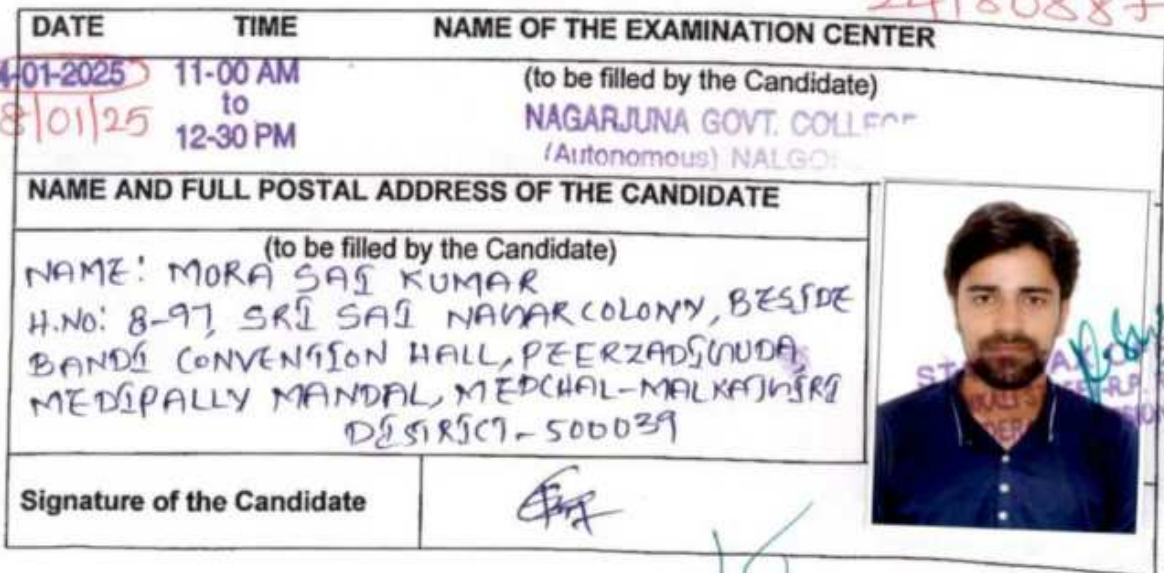 DATE TIME NAME OF THE EXAMINATION CENTER
-01-2025 11-00 AM (to be filled by the Candidate)
8/01/25 to NAGARJUNA GOVT.
12-30 PM (Autonomous)
NAME AND FULL POSTAL ADDRESS OF THE CANDIDATE
(to be filled by the Candidate)
NAME: MORA SAI KUMAR
H.NO: 8-97, SRI SAI NAGAR COLONY, BESIDE
BANDI CONVENTION HALL, PEERZADIGUDA
MEDIPALLY MANDAL, MEDCHAL-MALKAJGIRI
DISTRICT-500039
Signature of the Candidate